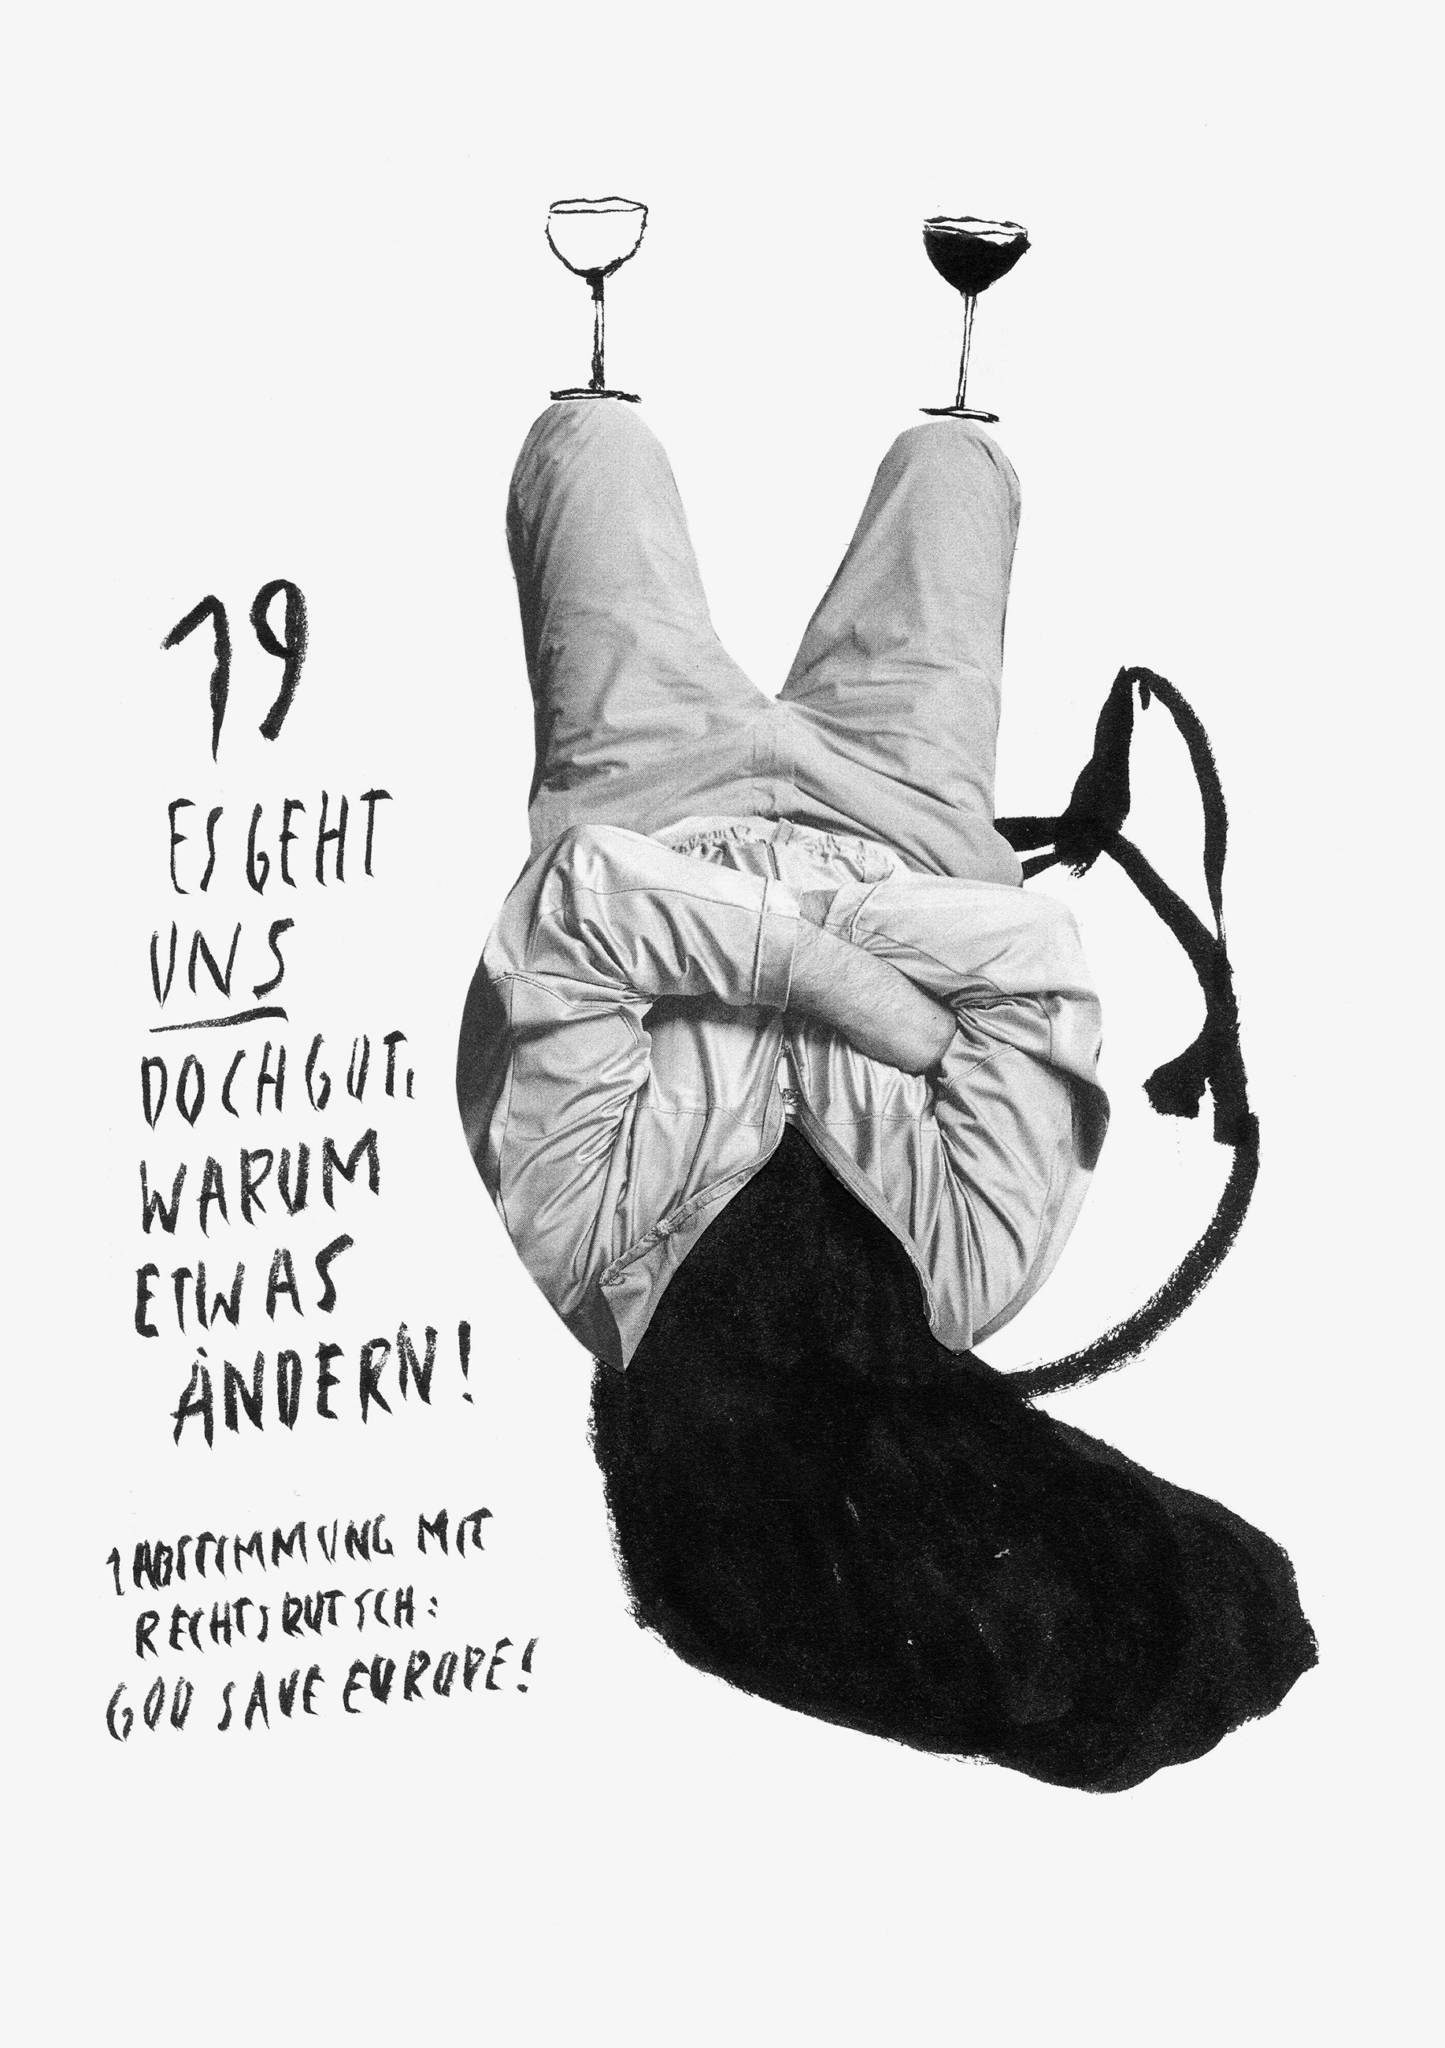 19
ES GEHT
UNS
DOCH GUT,
WARUM
ETWAS
ÄNDERN!
1 ABSTIMMUNG MIT
RECHTSRUTSCH:
GOD SAVE EUROPE!